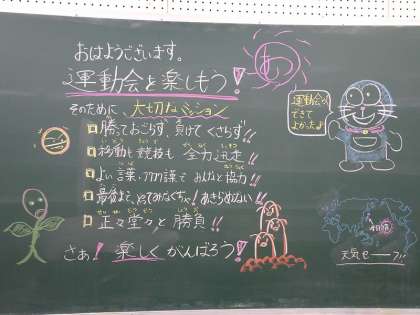 おはようございます。
運動会を楽しもう!
そのために、大切なミッション
勝っておごらず、負けてくさらず!!
移動も競技も全力迅走!!
よい言葉、フワフワ言葉でみんなと協力!!
最後まで、やってみなくちゃ!あきらめない!!
正々堂々と勝負!!
さぁ!楽しくがんばろう!
運動会
できて
よかったね
天気e-!!